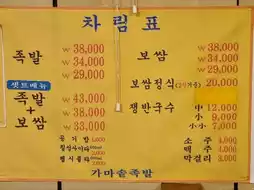 차림표
족발 ₩38,000
₩34,000
₩29,000
셋트메뉴
족발 + 보쌈 ₩43,000
₩38,000
₩33,000
공기밥 1,000
보쌈 ₩38,000
₩34,000
₩29,000
보쌈정식 20,000
쟁반국수 中 12,000
小 9,000
小小 7,000
소주 4,000
맥주 4,000
막걸리 3,000
가마솥족발